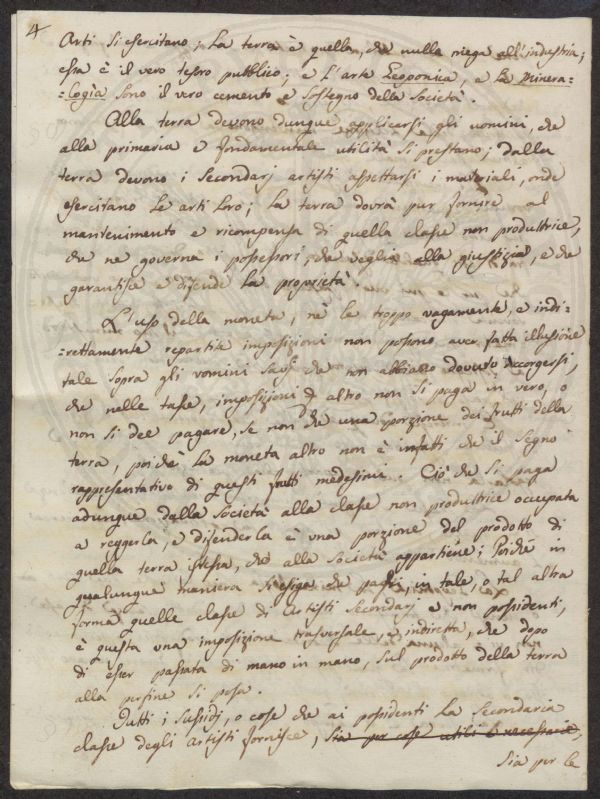 4
Arti si esercitano; La terra è quella, che nulla niega all'industria;
essa è il vero tesoro pubblico; e L'arte Geoponica, e La Minera=
=logìa sono il vero cemento e sostegno della Società.
Alla terra devono dunque applicarsi gli uomini, che
alla primaria e fondamentale utilità si prestano; dalla
terra devono i Secondarj artisti aspettarsi i materiali, onde
esercitano Le arti Loro; La terra dovrà pur fornire al
mantenimento e ricompensa di quella classe non produttrice,
che ne governa i possessori, che veglia alla giustizia, e che
garantisce e difende La proprietà.
L'uso della moneta, nè le troppo vagamente, e indi=
=rettamente repartite imposizioni non possono aver fatta illusione
tale sopra gli uomini che non abbiano dovuto accorgersi,
che nelle tasse, imposizioni altro non si paga in vero, o
non si dee pagare, se non che una porzione dei frutti della
terra, poichè La moneta altro non è infatti che il segno
rappresentativo di questi frutti medesimi. Ciò che si paga
adunque dalla Società alla classe non produttrice occupata
a reggerla, e difenderla è una porzione del prodotto di
quella terra stessa, che alla Società appartiene; Poichè in
qualunque maniera si esiga che passi, in tale, o tal altra
forma quelle classe di Artisti Secondarj e non possidenti,
è questa una imposizione trasversale, e indiretta, che dopo
di esser passata di mano in mano, sul prodotto della terra
alla perfine si posa.
Tutti i sussidj, o cose che ai possidenti La Secondaria
classe degli artisti fornisce, sia per cose utili e necessarie,
sia per le